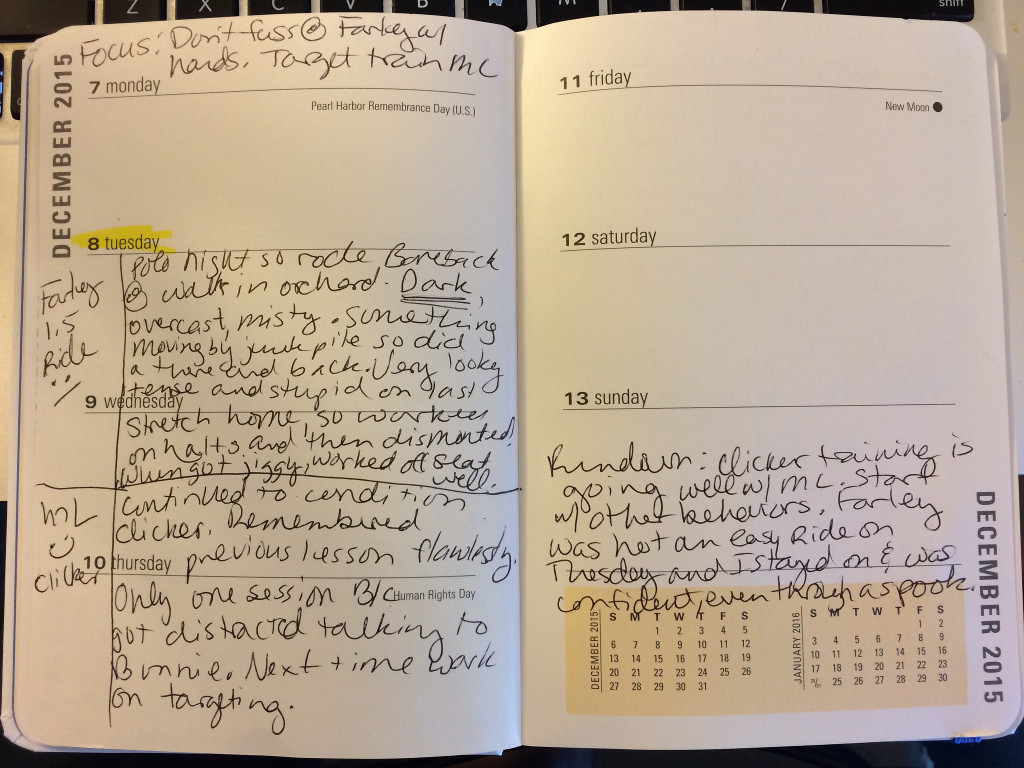 Z X C V B M ? shift
DECEMBER 2015
Focus: Don't fuss @ Farley w/
hands. Target train ML
7 monday
Pearl Harbor Remembrance Day (U.S.)
8 tuesday
Farley
1.5
Ride
Polo night so rode Bareback
@ walk in orchard. Dark,
overcast, misty. Something
moving by junk pile so did
a there and back. Very looky
tense and stupid on last
9 wednesday
stretch home, so worked
on halts and then dismounted!
When got jiggy, worked off seat
well.
ML
clicker
Continued to condition
clicker. Remembered
previous lesson flawlessly.
10 thursday
Human Rights Day
Only one session B/C
got distracted talking to
Bonnie. Next time work
on targeting.
11 friday
New Moon
12 saturday
13 sunday
Rundown: clicker training is
going well w/ ML. Start
w/ other behaviors. Farley
was not an easy Ride on
Tuesday and I stayed on & was
confident, even through a spook.
DECEMBER 2015
S M T W T F S
1 2 3 4 5
6 7 8 9 10 11 12
13 14 15 16 17 18 19
20 21 22 23 24 25 26
27 28 29 30 31
JANUARY 2016
S M T W T F S
1 2
3 4 5 6 7 8 9
10 11 12 13 14 15 16
17 18 19 20 21 22 23
24/31 25 26 27 28 29 30
DECEMBER 2015